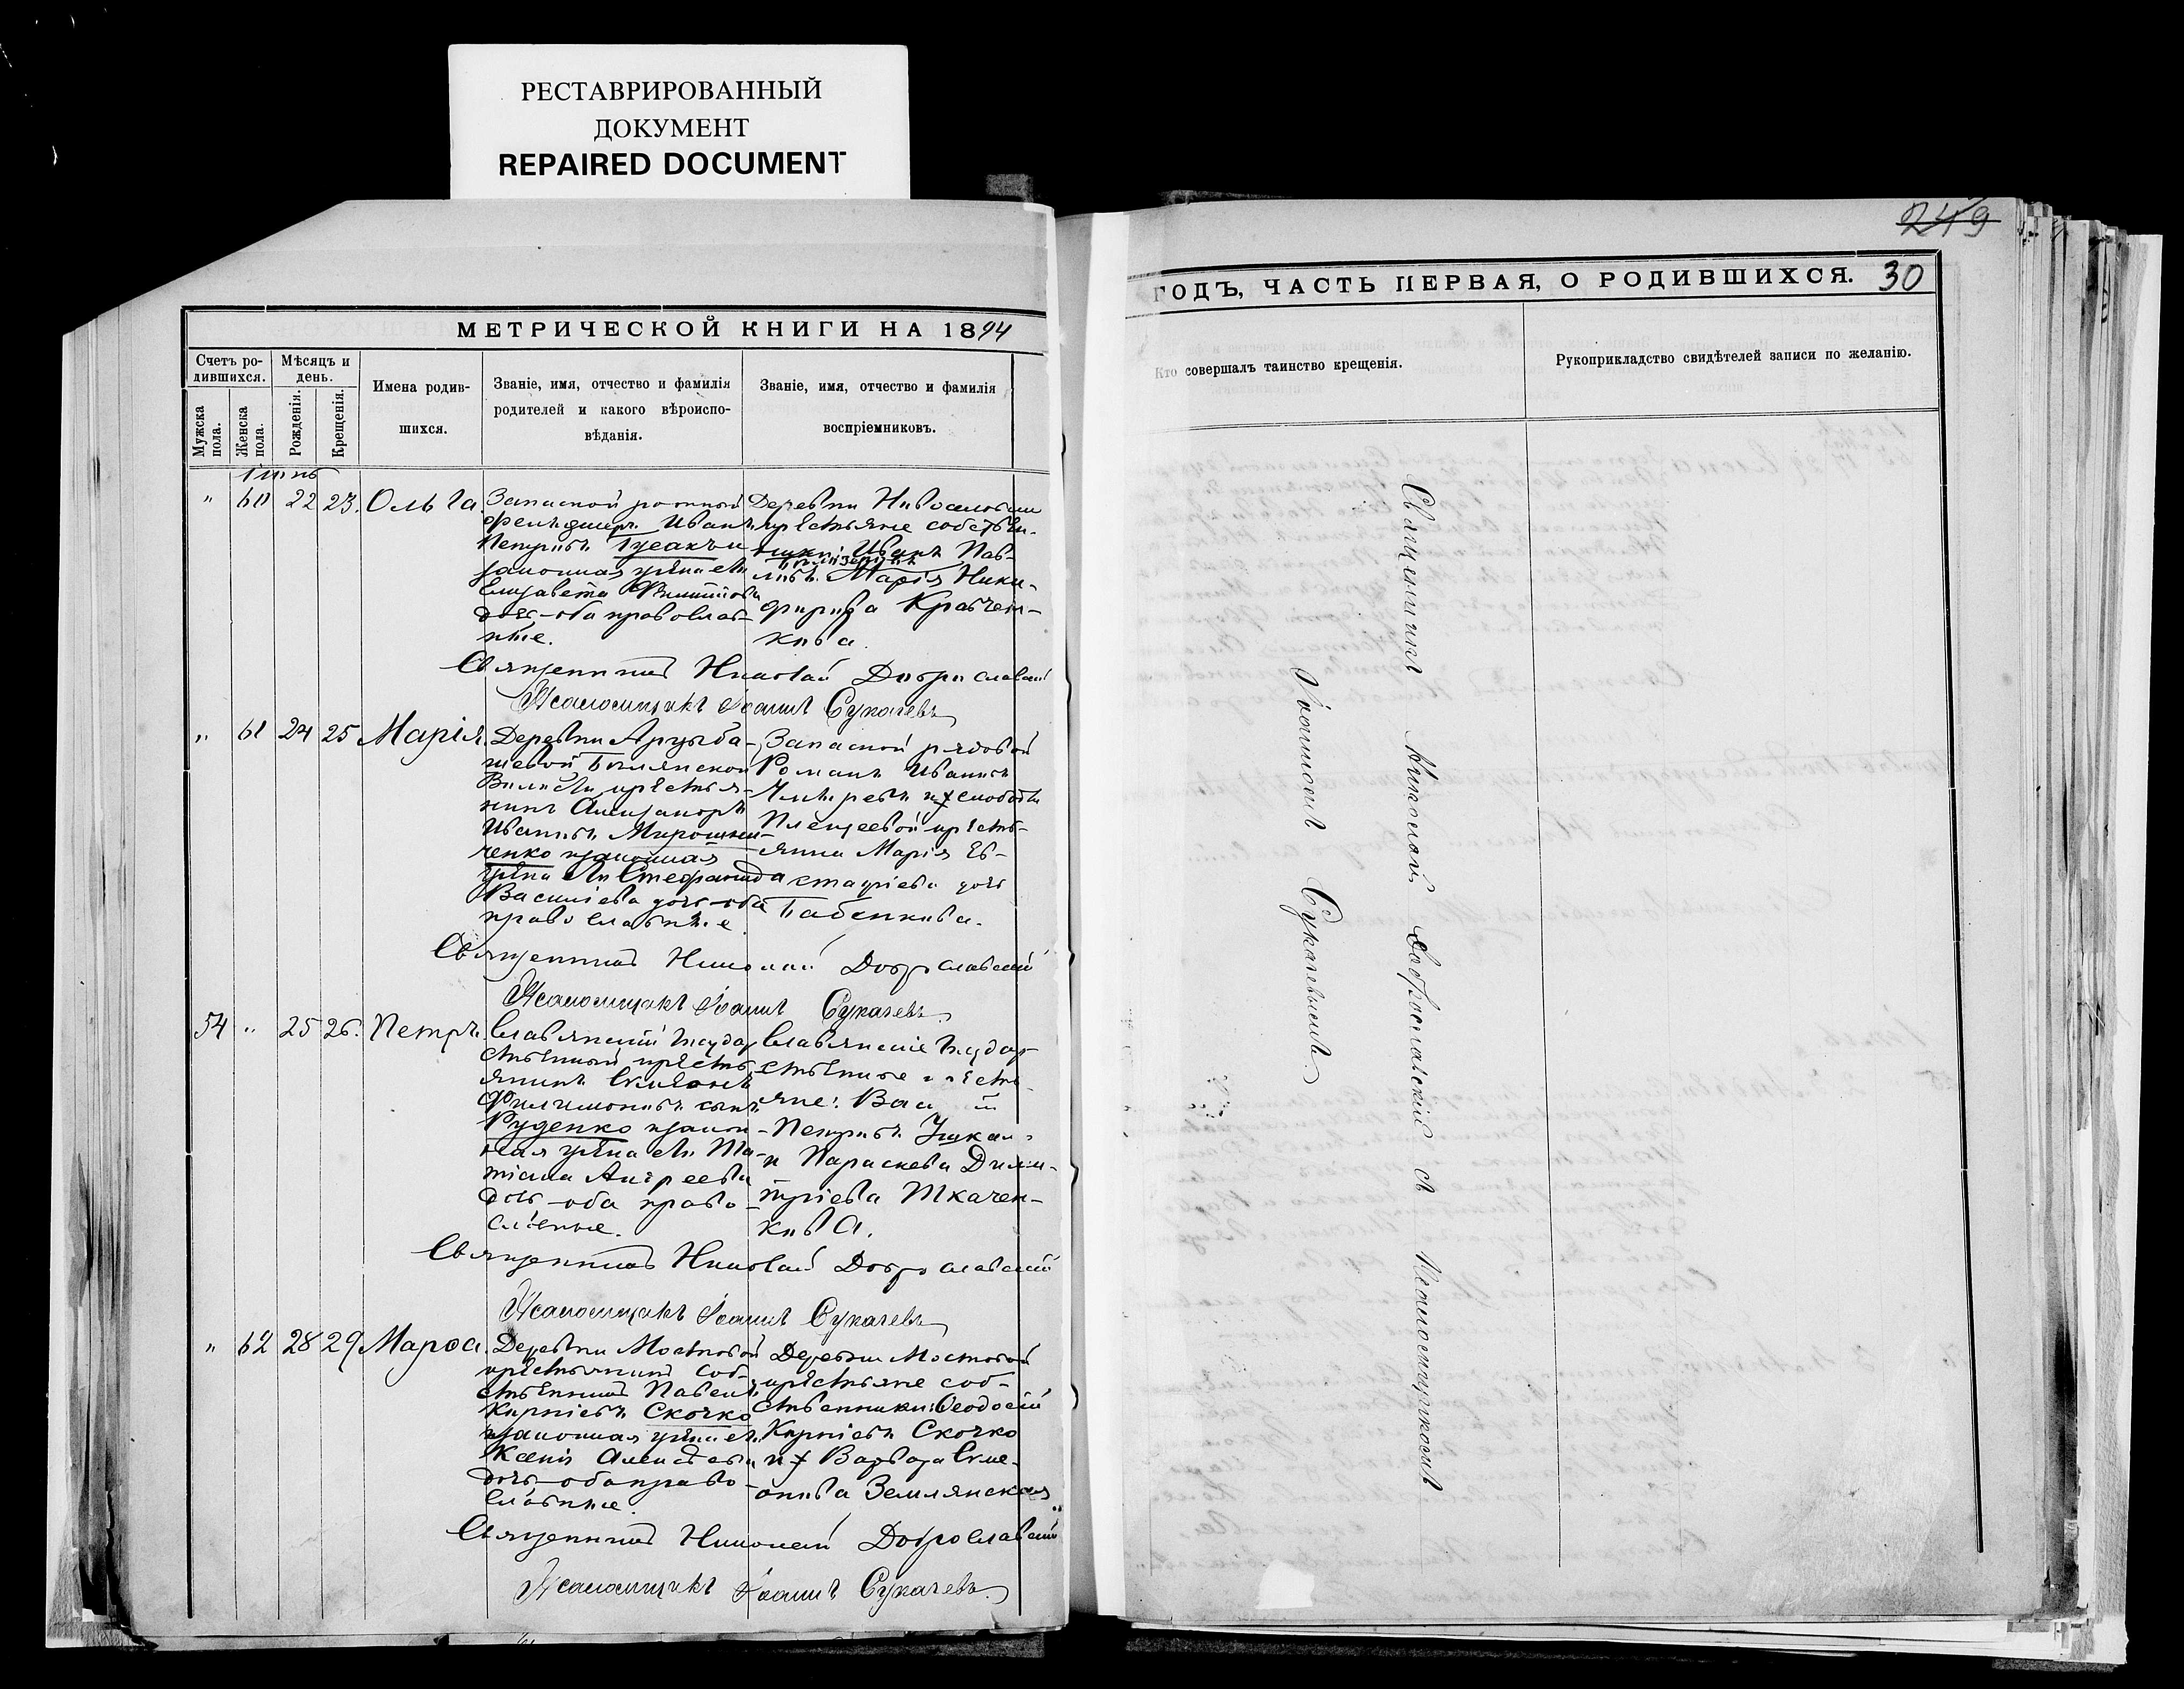 РЕСТАВРИРОВАННЫЙ
ДОКУМЕНТ
REPAIRED DOCUMENT
249
МЕТРИЧЕСКОЙ КНИГИ НА 1894
Счетъ ро-
дившихся.
Мужска
пола.
Женска
пола.
Мѣсяцъ и
день.
Рожденія.
Крещенія.
Имена родив-
шихся.
Званіе, имя, отчество и фамилія
родителей и какого вѣроиспо-
вѣданія.
Званіе, имя, отчество и фамилія
воспріемниковъ.
" 60 22 23. Ольга.
Запасной ротный
фельдшеръ Иванъ
Петровъ
законная жена его
Елисавета Филиппова
дочь - оба православ-
ные.
Деревни
крестьяне собствен-
ники: Иванъ Пав-
ловъ
Марія Ники-
форова Кравчен-
кова.
Священникъ Николай Доброславскій
Псаломщикъ Іоаннъ Сукачевъ
" 61 24 25 Марія.
Деревни
Волости, крестья-
нинъ Александръ
Ивановъ Мирошни-
ченко и законная
жена его Стефанида
Васильева дочь - оба
православные.
Запасной рядовой
Романъ Ивановъ
и слободы
кресть-
янка Марія Ев-
стафіева дочь
Бабенкова.
Священникъ Николай Доброславскій
Псаломщикъ Іоаннъ Сукачевъ
54 " 25 26. Петръ.
Славянскій Государ-
ственный кресть-
янинъ Симеонъ
Филимоновъ сынъ
Руденко и закон-
ная жена его Та-
тіана Андреева
дочь - оба право-
славные.
Славянскіе Государ-
ственные кресть-
яне:
Петровъ
и Параскева Дими-
тріева Ткачен-
кова.
Священникъ Николай Доброславскій
Псаломщикъ Іоаннъ Сукачевъ
" 62 28 29 Марѳа.
Деревни Мостовой
крестьянинъ соб-
ственникъ Павелъ
Карпіевъ Скочко
и законная жена его
Ксенія Алексѣева
дочь - оба право-
славные.
Деревни Мостовой
крестьяне соб-
ственники: Ѳеодосій
Карпіевъ Скочко
и Варвара Симе-
онова Землянская.
Священникъ Николай Доброславскій
Псаломщикъ Іоаннъ Сукачевъ
ГОДЪ, ЧАСТЬ ПЕРВАЯ, О РОДИВШИХСЯ. 30
Кто совершалъ таинство крещенія.
Рукоприкладство свидѣтелей записи по желанію.
Священникъ Николай Доброславскій съ Псаломщикомъ
Іоанномъ Сукачевымъ.